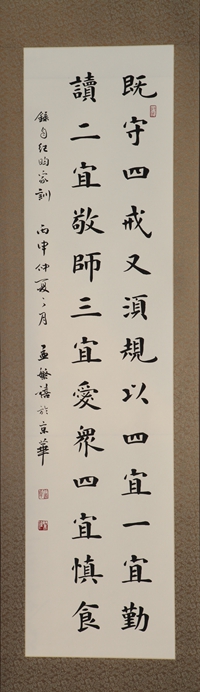 既守四戒又須規以四宜一宜勤
讀二宜敬師三宜愛衆四宜慎食
錄自紀昀家訓 丙申仲夏之月 孟繁禧於京華